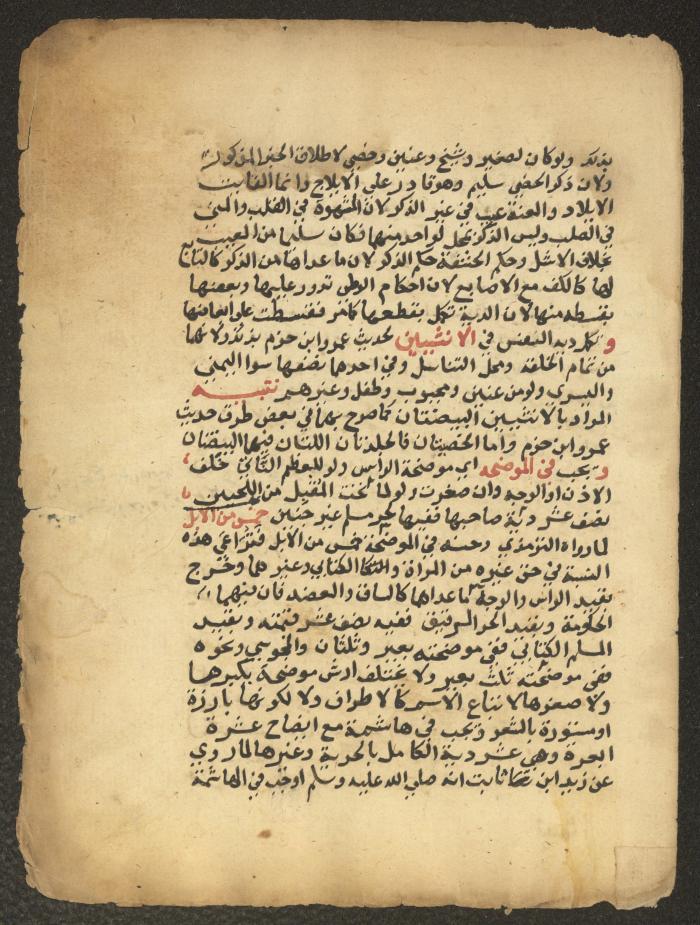 بذلك ولو كان لصغير وشيخ وعنين وخصي لاطلاق الخبر المذكور
ولان ذكر الخصي سليم وهو قادر علي الايلاج وانما الفايت
الايلاد والعنة عيب في غير الذكر لان الشهوة في القلب والمني
في الصلب وليس الذكر بمحل لواحد منهما فكان سليما من العيب
بخلاف الاشل وحكم الحشفة حكم الذكر لان ما عداها من الذكر كالتابع
لها كالكف مع الاصابع لان احكام الوطي تدور عليها وبعضها
بقسطه منها لان الدية تكمل بقطعها كامر فقسطت علي ابعاضها
و تكمل دية النفس في الانثيين لحديث عمرو ابن حزم بذلك ولانهما
من تمام الخلقة ومحل التناسل وفي احدهما نصفها سوا اليمني
واليسري ولو من عنين ومجبوب وطفل وغيرهم تنبيه
المراد بالانثيين البيضتان كما صرح بهما في بعض طرق حديث
عمرو ابن حزم واما الخصيتان فالجلدتان اللتان فيهما البيضتان
و يجب في الموضحة اي موضحة الراس ولو للعظم الناتئ خلف
الاذن او الوجه وان صغرت ولو لما تحت المقبل من اللحيين
نصف عشر دية صاحبها ففيها لحر مسلم غير جنين خمس من الابل
لما رواه الترمذي وحسنه في الموضحة خمس من الابل فتراعي هذه
النسبة في حق غيره من المراة والكتابي وغيرهما وخرج
بقيد الراس والوجه ما عداهما كالساق والعضد فان فيهما
الحكومة وبقيد الحر الرقيق ففيه نصف عشر قيمته وبقيد
المسلم الكتابي ففي موضحته بعير وثلثان والمجوسي ونحوه
ففي موضحته ثلث بعير ولا يختلف ارش موضحة بكبرها
ولا صغرها لاتباع الاسم كالاطراف ولا لكونها بارزة
او مستورة بالشعر ويجب في هاشمة مع ايضاح عشرة
ابعرة وهي عشر دية الكامل بالحرية وغيرها لما روي
عن زيد ابن ثابت انه صلي الله عليه وسلم اوجب في الهاشمة